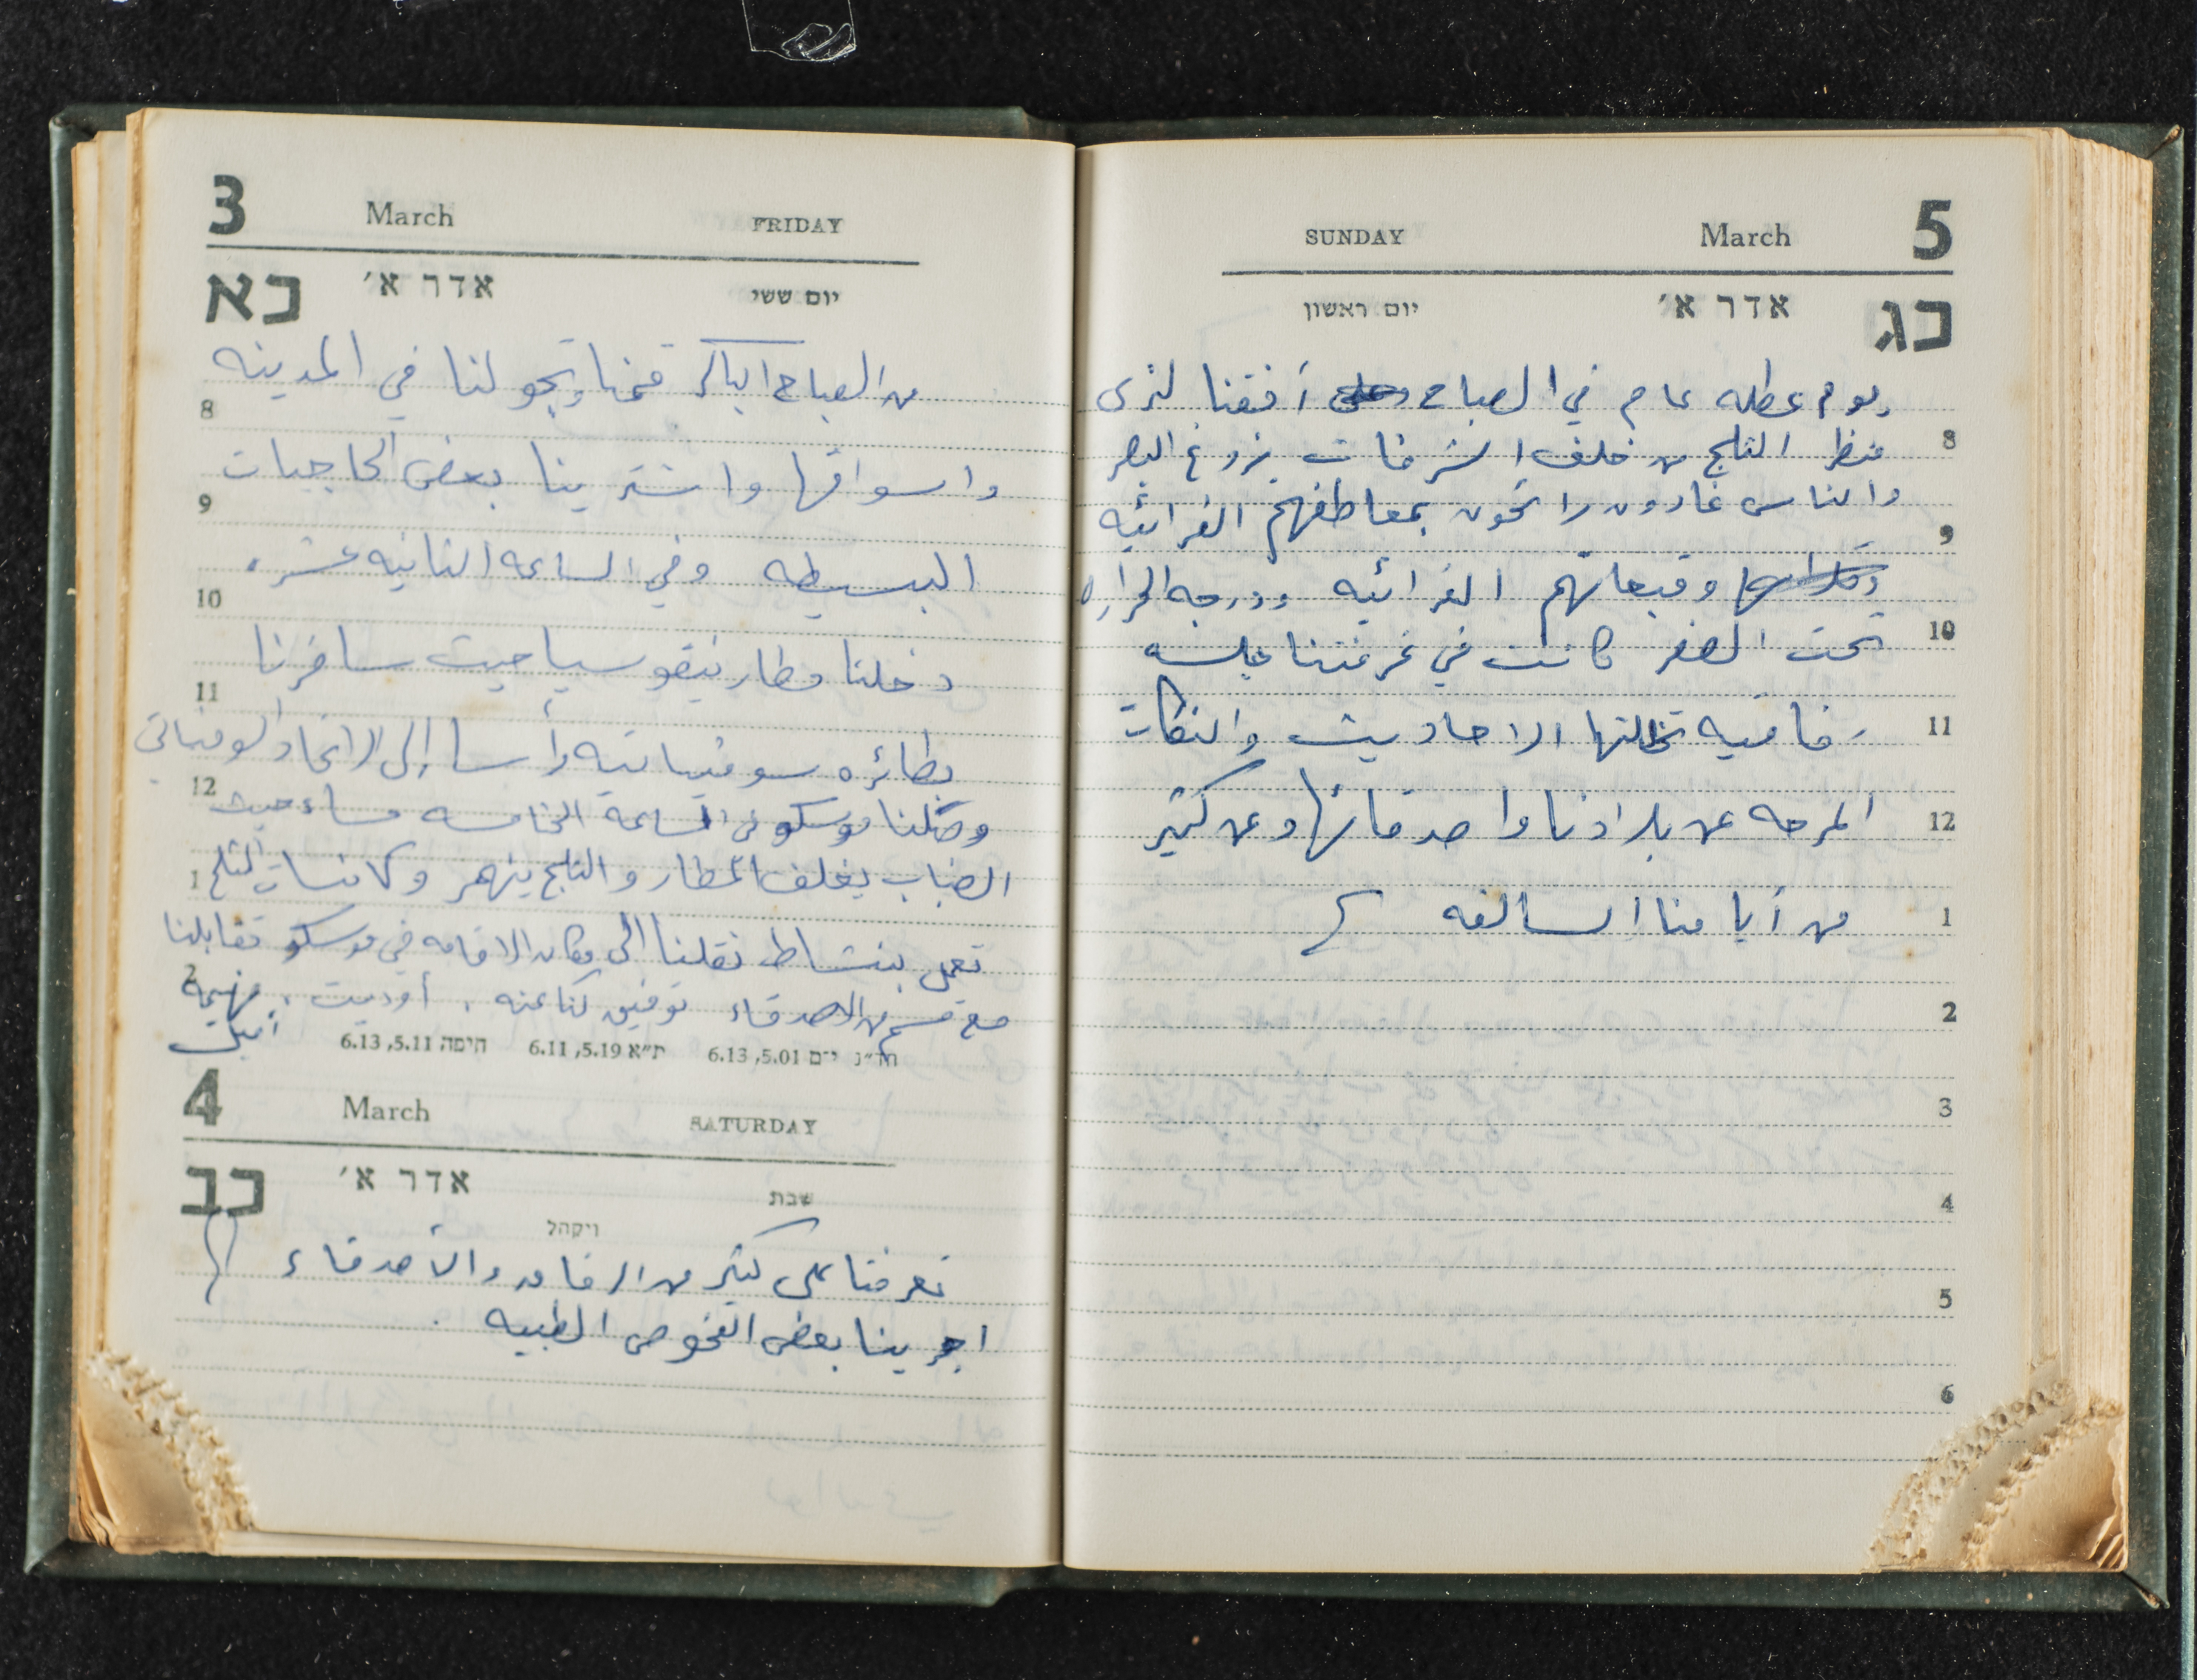 3 March FRIDAY
כא אדר א׳ יום ששי
من الصباح الباكر قمنا بتجولنا في المدينه
8
واسواقها واشترينا بعض الحاجيات
9
البسيطه وفي الساعه الثانيه عشره
10
دخلنا مطار نيقوسيا حيث سافرنا
11
بطائره سوفياتيه رأسا إلى الاتحاد السوفياتي
12
وصلنا موسكو في الساعة الخامسه مساء حيث
الضباب يغلف المطار والثلج ينهمر وكانسات الثلج
1
تعمل بنشاط نقلنا الى مكان الاقامه في موسكو تقابلنا
2
مع قسم من الاصدقاء توفيق كناعنه ، أوديت ، فهيمة
حיפה 6.13 ,5.11 ת״א 6.11 ,5.19 י־ם 6.13 ,5.01
4 March SATURDAY
כב אדר א׳ שבת
ויקהל
تعرفنا على كثير من الرفاق والأصدقاء
اجرينا بعض الفحوص الطبيه .
SUNDAY March 5
כג אדר א׳ יום ראשון
يوم عطله عام في الصباح أفقنا لنرى
8
منظر الثلج من خلف الشرفات يزوغ البصر
والناس غادون رائحون بمعاطفهم الفرائيه
9
وقبعاتهم الفرائيه ودرجه الحراره
10
تحت الصفر كانت في غرفتنا جلسه
11
رفاقيه تخللتها الاحاديث والنكات
12
المرحه عن بلادنا واصدقائها وعن كثير
1
من أيامنا السالفه
2
3
4
5
6